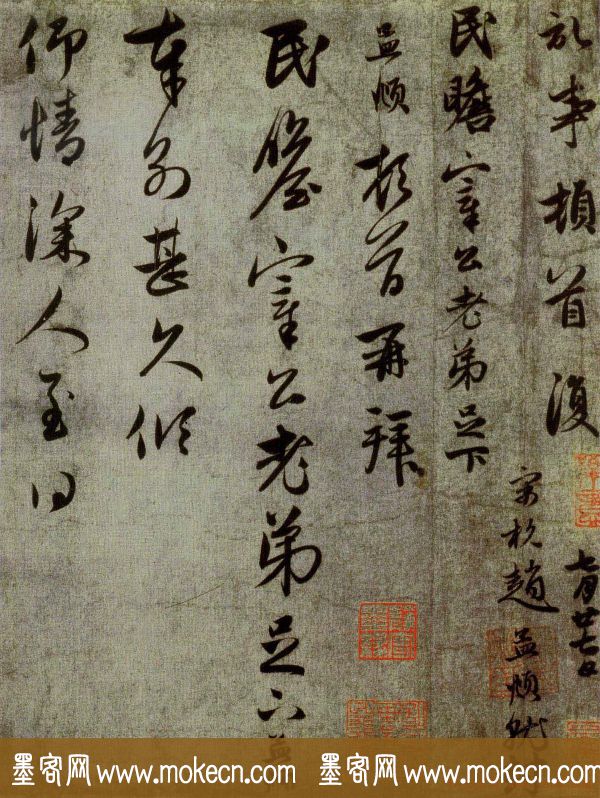 事頓首復
七月廿七日
民瞻宰公老弟足下
趙孟頫
孟頫頓首再拜
民瞻宰公老弟足下孟
奉別甚久傾
仰情深人至
墨客网 www.mokecn.com 墨客网 www.mokecn.com